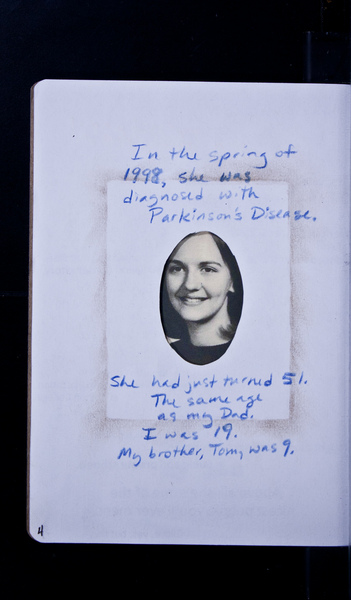 In the spring of
1998, she was
diagnosed with
Parkinson's Disease.
She had just turned 51.
The same age
as my Dad.
I was 19.
My brother, Tom, was 9.
4